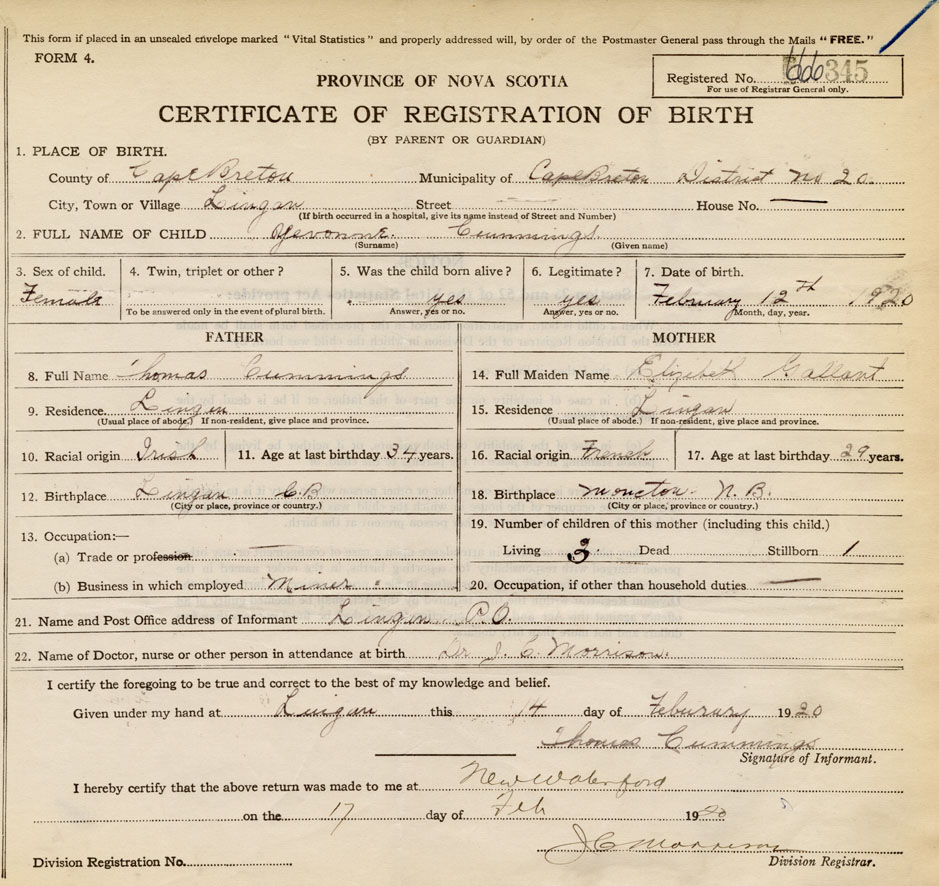 This form if placed in an unsealed envelope marked "Vital Statistics" and properly addressed will, by order of the Postmaster General pass through the Mails "FREE."
FORM 4.
Registered No. 345
For use of Registrar General only.
PROVINCE OF NOVA SCOTIA
CERTIFICATE OF REGISTRATION OF BIRTH
(BY PARENT OR GUARDIAN)
1. PLACE OF BIRTH.
County of Cape Breton Municipality of Cape Breton District No 20.
City, Town or Village Lingan Street House No.
(If birth occurred in a hospital, give its name instead of Street and Number)
2. FULL NAME OF CHILD Yevonne. Cummings.
(Surname) (Given name)
3. Sex of child. 4. Twin, triplet or other? 5. Was the child born alive? 6. Legitimate? 7. Date of birth.
Female yes yes February 12th 1920
To be answered only in the event of plural birth. Answer, yes or no. Answer, yes or no. Month, day, year.
FATHER MOTHER
8. Full Name Thomas Cummings 14. Full Maiden Name Elizebeth Gallant
9. Residence Lingan 15. Residence Lingan
(Usual place of abode.) If non-resident, give place and province. (Usual place of abode.) If non-resident, give place and province.
10. Racial origin Irish 11. Age at last birthday 34 years. 16. Racial origin French 17. Age at last birthday 29 years.
12. Birthplace Lingan C.B 18. Birthplace Moncton N.B.
(City or place, province or country.) (City or place, province or country.)
13. Occupation:— 19. Number of children of this mother (including this child.)
(a) Trade or profession Living 3. Dead Stillborn 1
(b) Business in which employed Miner 20. Occupation, if other than household duties
21. Name and Post Office address of Informant Lingan P.O.
22. Name of Doctor, nurse or other person in attendance at birth Dr J. C. Morrison.
I certify the foregoing to be true and correct to the best of my knowledge and belief.
Given under my hand at Lingan this 14 day of Feburury 1920
Thomas Cummings
Signature of Informant.
I hereby certify that the above return was made to me at New Waterford
on the 17 day of Feb 1920
J C Morrison
Division Registration No. Division Registrar.